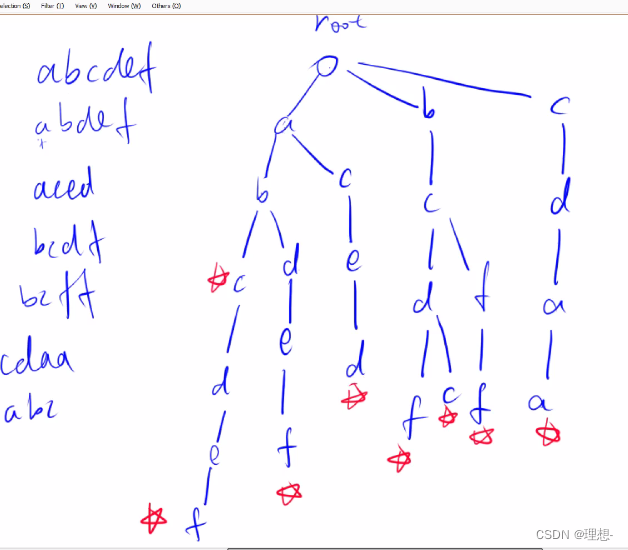 Selection (S) Filter (I) View (V) Window (W) Others (O)
root
abcdef
abdef
aced
bcdf
bcff
cdaa
abc
a b c
b c c d
c d e d f a
d e d f c f a
e f
f
CSDN @理想-